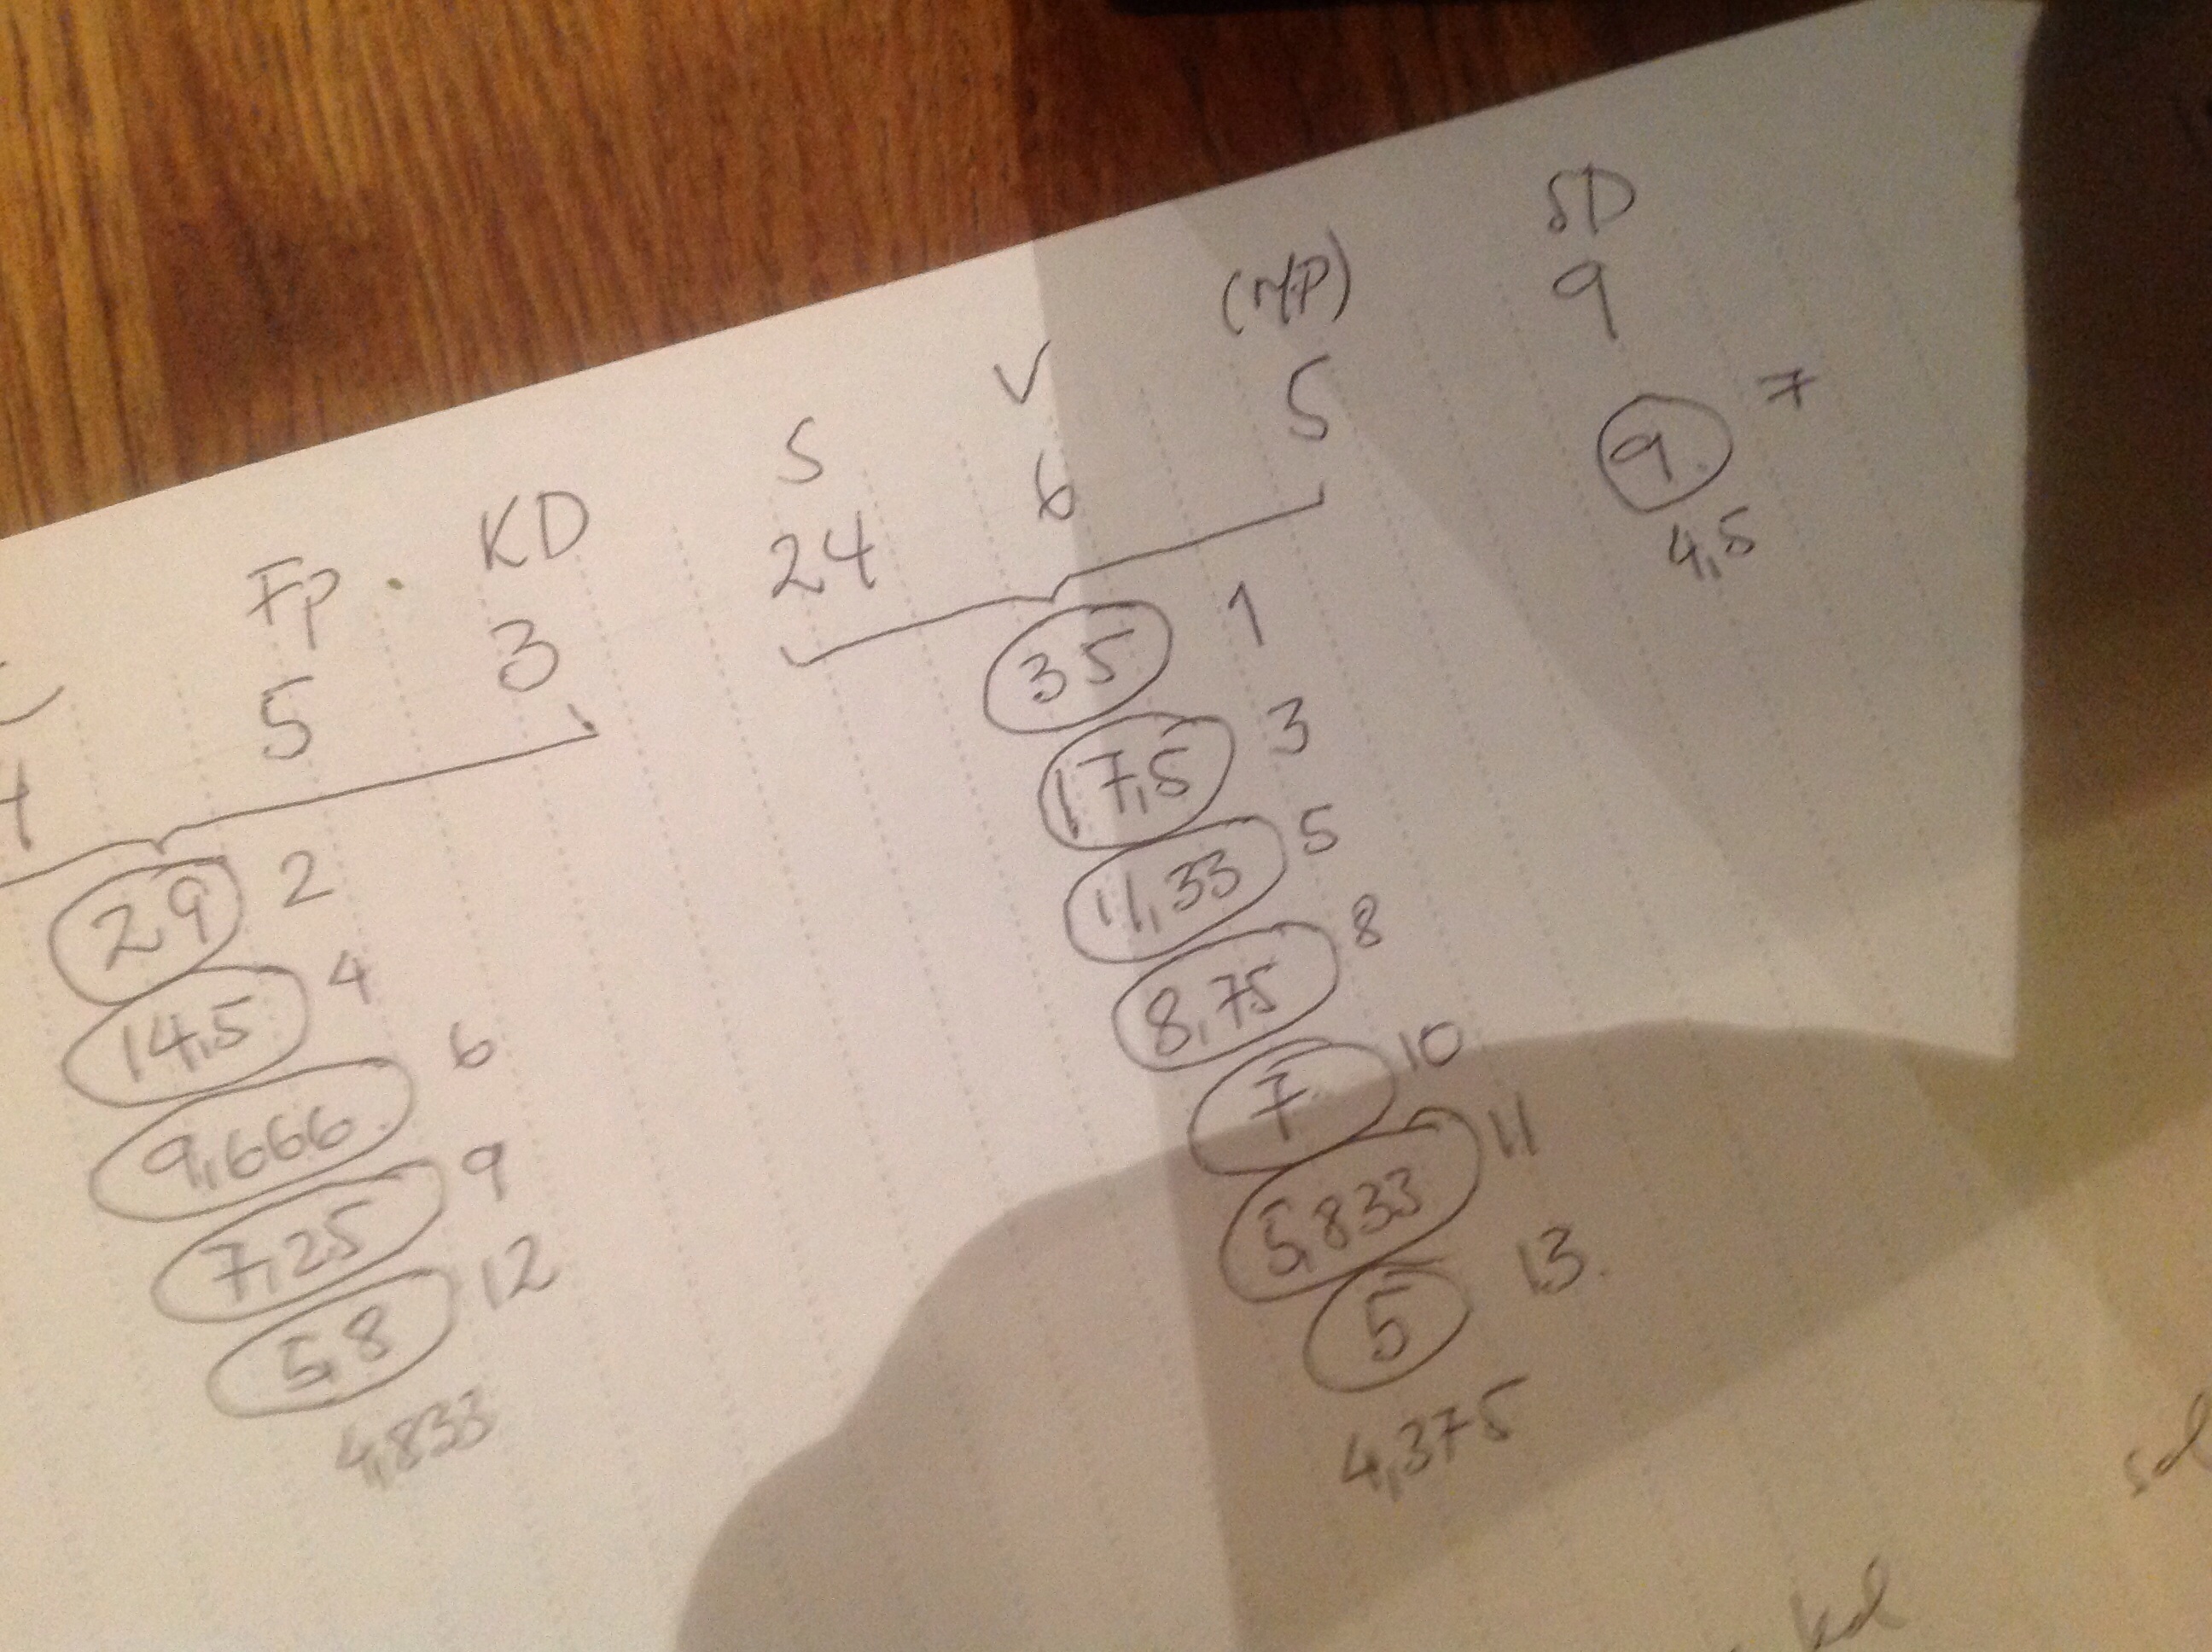 Fp. KD S V (MP) SD
5 3 24 6 5 9
29 2 35 1 9. 7
14,5 4 17,5 3 4,5
9,666. 6 11,33 5
7,25 9 8,75 8
5,8 12 7. 10
4,833 5,833 11
5 13.
4,375
sd
kd